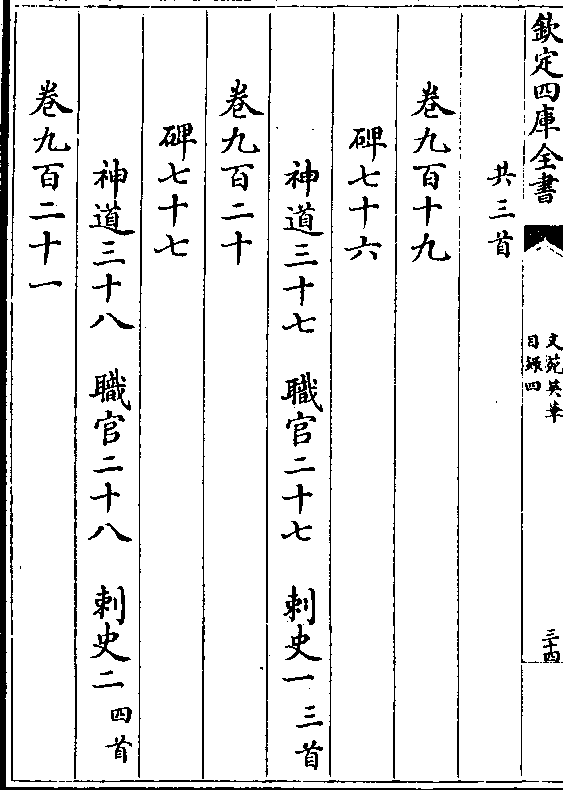 欽定四庫全書
文苑英華
目錄四
三十四
共三首
卷九百十九
碑七十六
神道三十七　職官二十七　刺史一三首
卷九百二十
碑七十七
神道三十八　職官二十八　刺史二四首
卷九百二十一